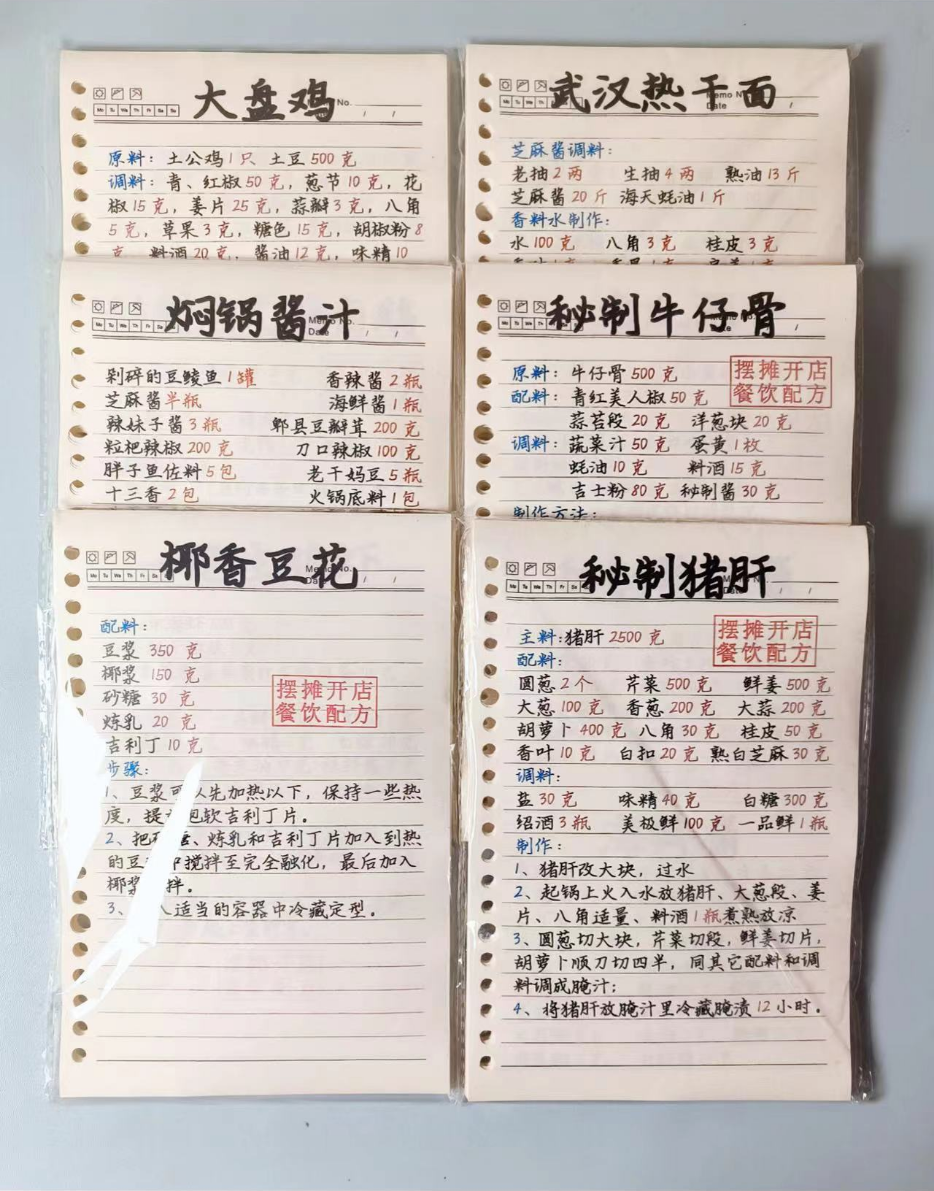 大盘鸡
No.
Mo Tu We Th Fr Sa Su
原料：土公鸡1只 土豆500克
调料：青、红椒50克，葱节10克，花
椒15克，姜片25克，蒜瓣3克，八角
5克，草果3克，糖色15克，胡椒粉8
克 料酒20克，酱油12克，味精10
武汉热干面
Memo No.
Date
芝麻酱调料：
老抽2两 生抽4两 熟油13斤
芝麻酱20斤 海天蚝油1斤
香料水制作：
水100克 八角3克 桂皮3克
焖锅酱汁
Memo No.
Date
剁碎的豆鲮鱼1罐 香辣酱2瓶
芝麻酱半瓶 海鲜酱1瓶
辣妹子酱3瓶 郫县豆瓣茸200克
粒粑辣椒200克 刀口辣椒100克
胖子鱼佐料5包 老干妈豆5瓶
十三香2包 火锅底料1包
秘制牛仔骨
摆摊开店
餐饮配方
原料：牛仔骨500克
配料：青红美人椒50克
蒜苔段20克 洋葱块20克
调料：蔬菜汁50克 蛋黄1枚
蚝油10克 料酒15克
吉士粉80克 秘制酱30克
制作方法：
椰香豆花
Mo Tu We Th Fr Sa Su
配料：
豆浆350克
椰浆150克
砂糖30克
炼乳20克
吉利丁10克
摆摊开店
餐饮配方
步骤：
1、豆浆可以先加热以下，保持一些热
度，提 泡软吉利丁片。
2、把 、炼乳和吉利丁片加入到热
的豆 中搅拌至完全融化，最后加入
椰浆 拌。
3、 适当的容器中冷藏定型。
秘制猪肝
摆摊开店
餐饮配方
主料：猪肝2500克
配料：
圆葱2个 芹菜500克 鲜姜500克
大葱100克 香葱200克 大蒜200克
胡萝卜400克 八角30克 桂皮50克
香叶10克 白扣20克 熟白芝麻30克
调料：
盐30克 味精40克 白糖300克
绍酒3瓶 美极鲜100克 一品鲜1瓶
制作：
1、猪肝改大块，过水
2、起锅上火入水放猪肝、大葱段、姜
片、八角适量、料酒1瓶煮熟放凉
3、圆葱切大块，芹菜切段，鲜姜切片，
胡萝卜顺刀切四半，同其它配料和调
料调成腌汁；
4、将猪肝放腌汁里冷藏腌渍12小时。